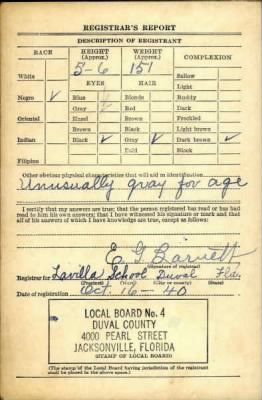 REGISTRAR'S REPORT
DESCRIPTION OF REGISTRANT
RACE HEIGHT (Approx.) WEIGHT (Approx.) COMPLEXION
5-6 151
White Sallow
EYES HAIR Light
Negro ✓ Blue Blonde Ruddy
Gray Red Dark
Oriental Hazel Brown Freckled
Brown Black Light brown
Indian Black ✓ Gray ✓ Dark brown ✓
Bald Black
Filipino
Other obvious physical characteristics that will aid in identification
Unusually gray for age
I certify that my answers are true; that the person registered has read or has had
read to him his own answers; that I have witnessed his signature or mark and that
all of his answers of which I have knowledge are true, except as follows:
E G Barnett
(Signature of registrar)
Registrar for Lavilla School Duval Fla.
(Precinct) (City or county) (State)
Date of registration Oct. 16-40
LOCAL BOARD No. 4
DUVAL COUNTY
4000 PEARL STREET
JACKSONVILLE, FLORIDA
(STAMP OF LOCAL BOARD)
(The stamp of the Local Board having jurisdiction of the registrant
shall be placed in the above space.)